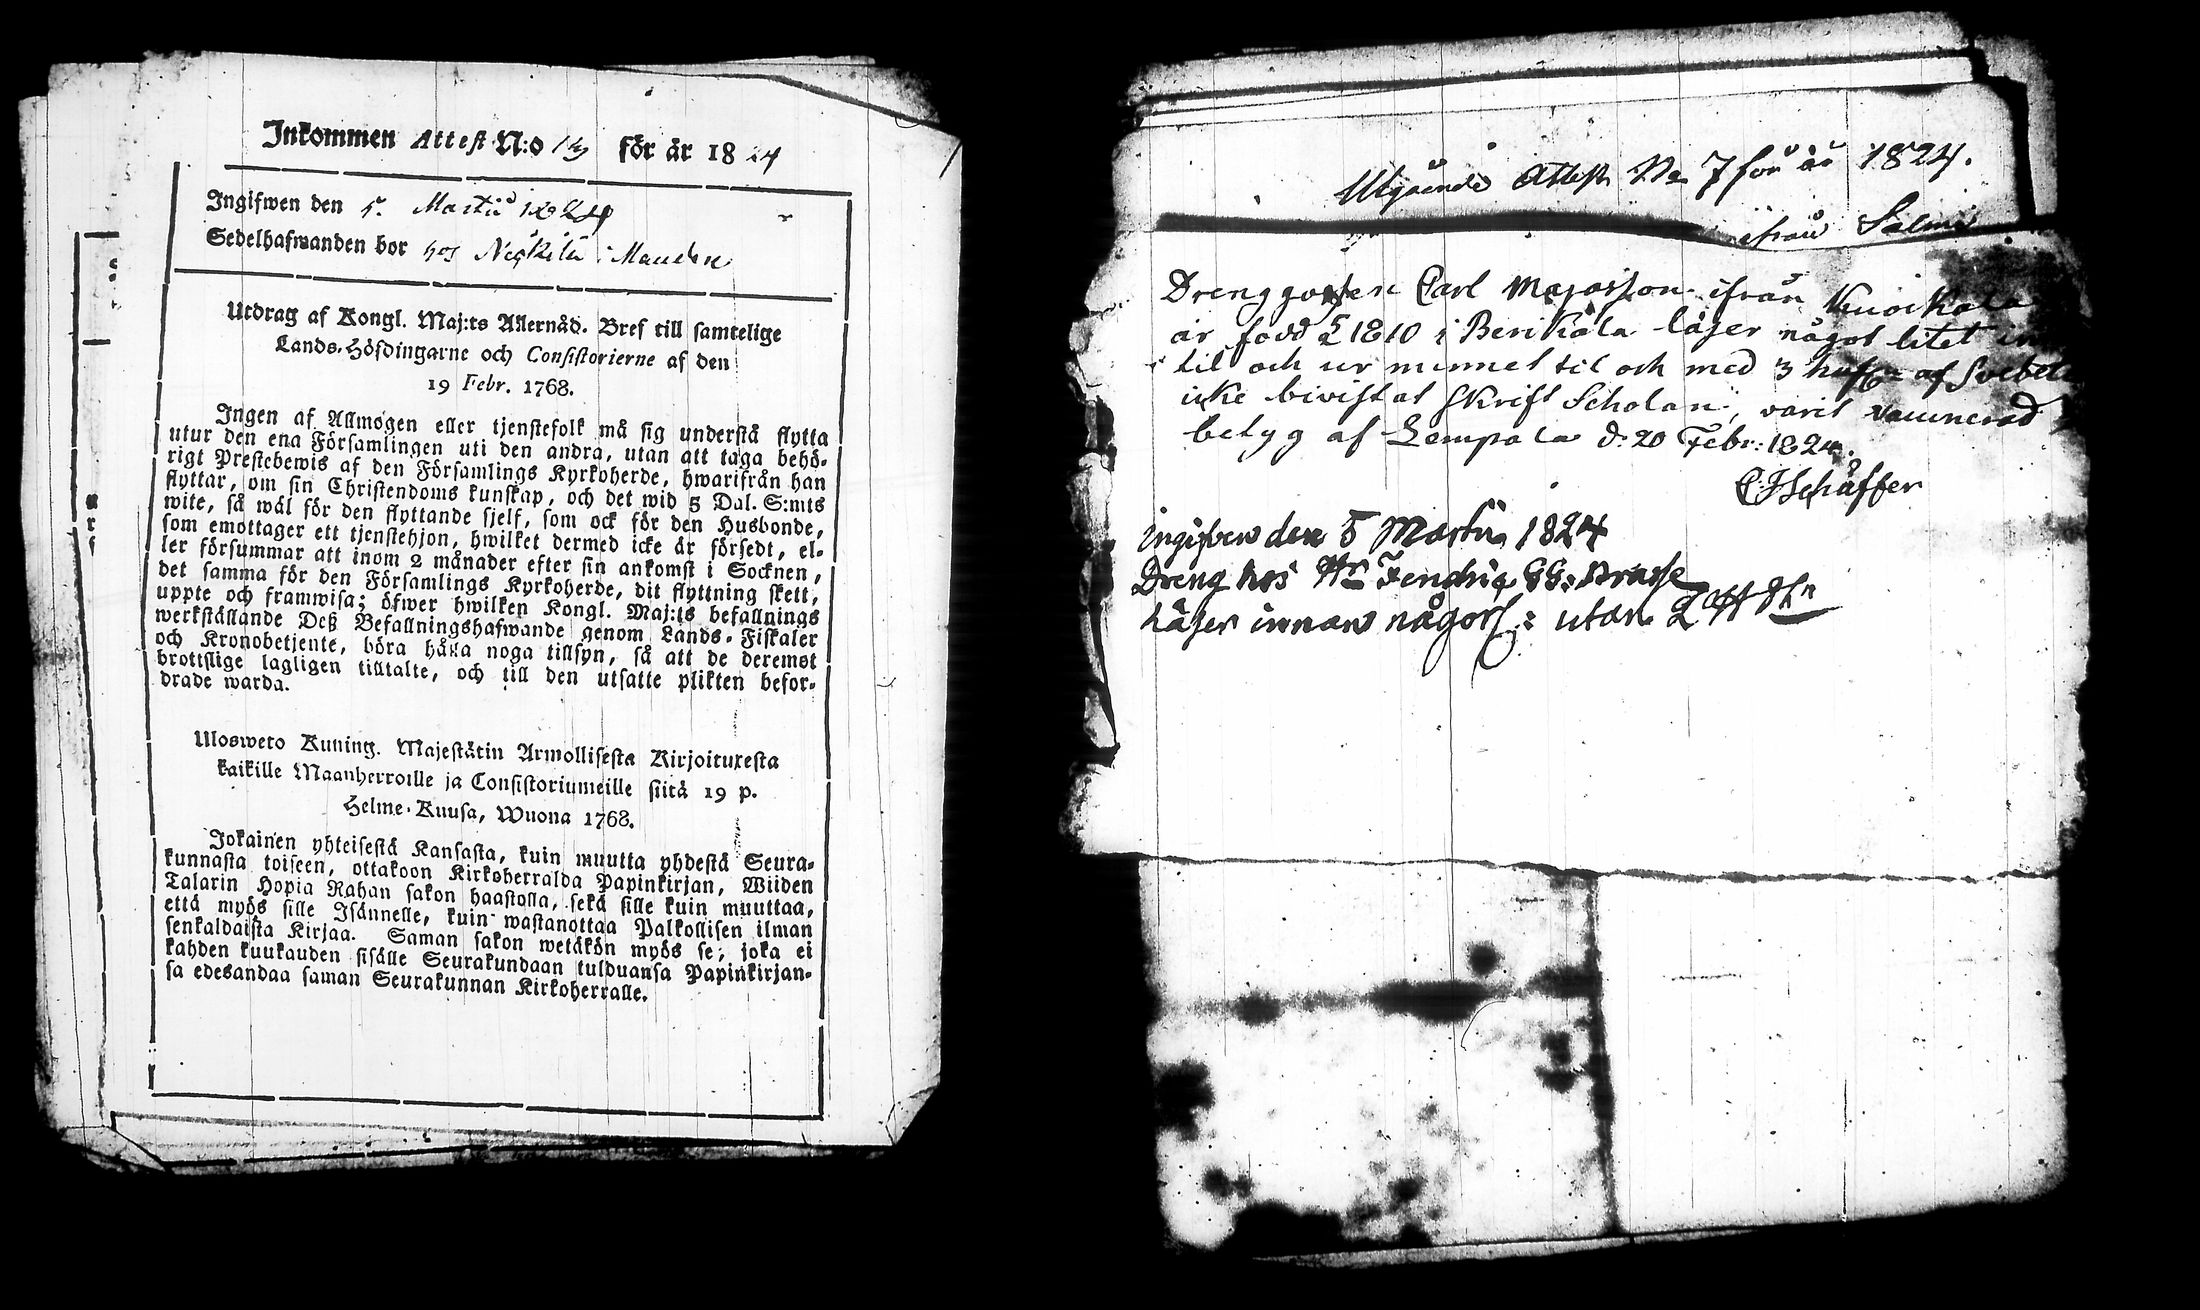 Inkommen Attest N:o för år 1824
Ingifwen den 5. Martii 1824
Sedelhafwanden bor hos i
Utdrag af Kongl. Maj:ts Allernåd. Bref till samtelige
Lands-Höfdingarne och Consistorierne af den
19 Febr. 1768.
Ingen af Allmogen eller tjenstefolk må sig understå flytta
utur den ena Församlingen uti den andra, utan att taga behö-
rigt Prestebewis af den Församlings Kyrkoherde, hwarifrån han
flyttar, om sin Christendoms kunskap, och det wid 5 Dal. S:mts
wite, så wäl för den flyttande sjelf, som ock för den Husbonde,
som emottager ett tjenstehjon, hwilket dermed icke är försedt, el-
ler försummar att inom 2 månader efter sin ankomst i Socknen,
det samma för den Församlings Kyrkoherde, dit flyttning skett,
uppte och framwisa; öfwer hwilken Kongl. Maj:ts befallnings
werkställande Deß Befallningshafwande genom Lands-Fiskaler
och Kronobetjente, böra hålla noga tillsyn, så att de deremot
brottslige lagligen tilltalte, och till den utsatte plikten befor-
drade warda.
Ulosweto Kuning. Majestätin Armollisesta Kirjoituxesta
kaikille Maanherroille ja Consistoriumeille siitä 19 p.
Helme-Kuusa, Wuona 1768.
Jokainen yhteisestä Kansasta, kuin muutta yhdestä Seura-
kunnasta toiseen, ottakoon Kirkoherralda Papinkirjan, Wiiden
Talarin Hopia Rahan sakon haastolla, sekä sille kuin muuttaa,
että myös sille Isännelle, kuin wastanottaa Palkollisen ilman
senkaldaista Kirjaa. Saman sakon wetäkön myös se; joka ei
kahden kuukauden sisälle Seurakundaan tulduansa Papinkirjan-
sa edesandaa saman Seurakunnan Kirkoherralle.
Utgående Attest No 7 för år 1824.
ifrån Salmis
Drenggossen Carl Majasson ifrån
är född 1810 i Berikala läser något litet
til och ur minnet til och med 3 af
icke bivistat Skrift Scholan, varit vaccinerad
betyg af Lempala d. 20 Febr: 1824.
C J Schäffer
ingifven den 5 Martii 1824
Dreng hos Hr Fendrig
Läser innan något: utan